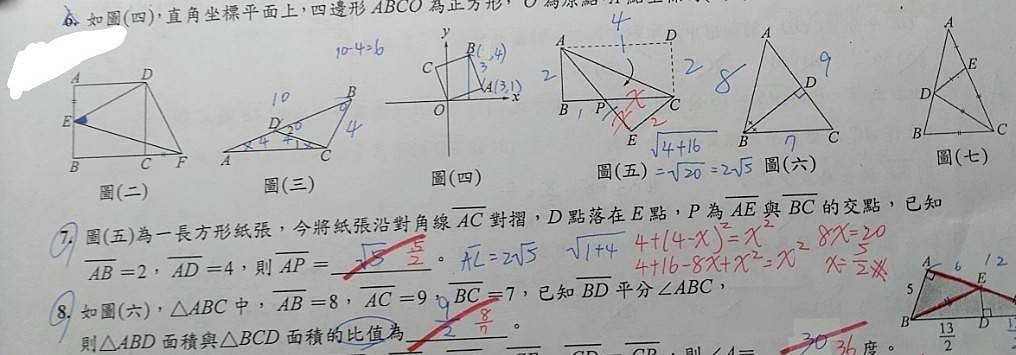 6. 如圖(四),直角坐標平面上,四邊形ABCO為正方形, O為原點
10-4=6
A D E B C F
圖(二)
10 B D 4 4 A C
圖(三)
y B( ,4) C 3 A(3,1) O x
圖(四)
4 A D 2 2 B 1 P x x C E 2
√4+16
圖(五) =√20 =2√5
A 8 9 D B 7 C
圖(六)
A E D B C
圖(七)
7. 圖(五)為一長方形紙張,今將紙張沿對角線AC對摺,D點落在E點,P為AE與BC的交點,已知
AB=2,AD=4,則AP= √5 5/2 。 AC=2√5 √1+4
4+(4-x)²=x² 8x=20
4+16-8x+x²=x² x=5/2
8. 如圖(六),△ABC中,AB=8,AC=9,BC=7,已知BD平分∠ABC,
則△ABD面積與△BCD面積的比值為 9/2 8/7 。
A 6 E 12 5 B D 13/2
則∠A= 30 36 度。